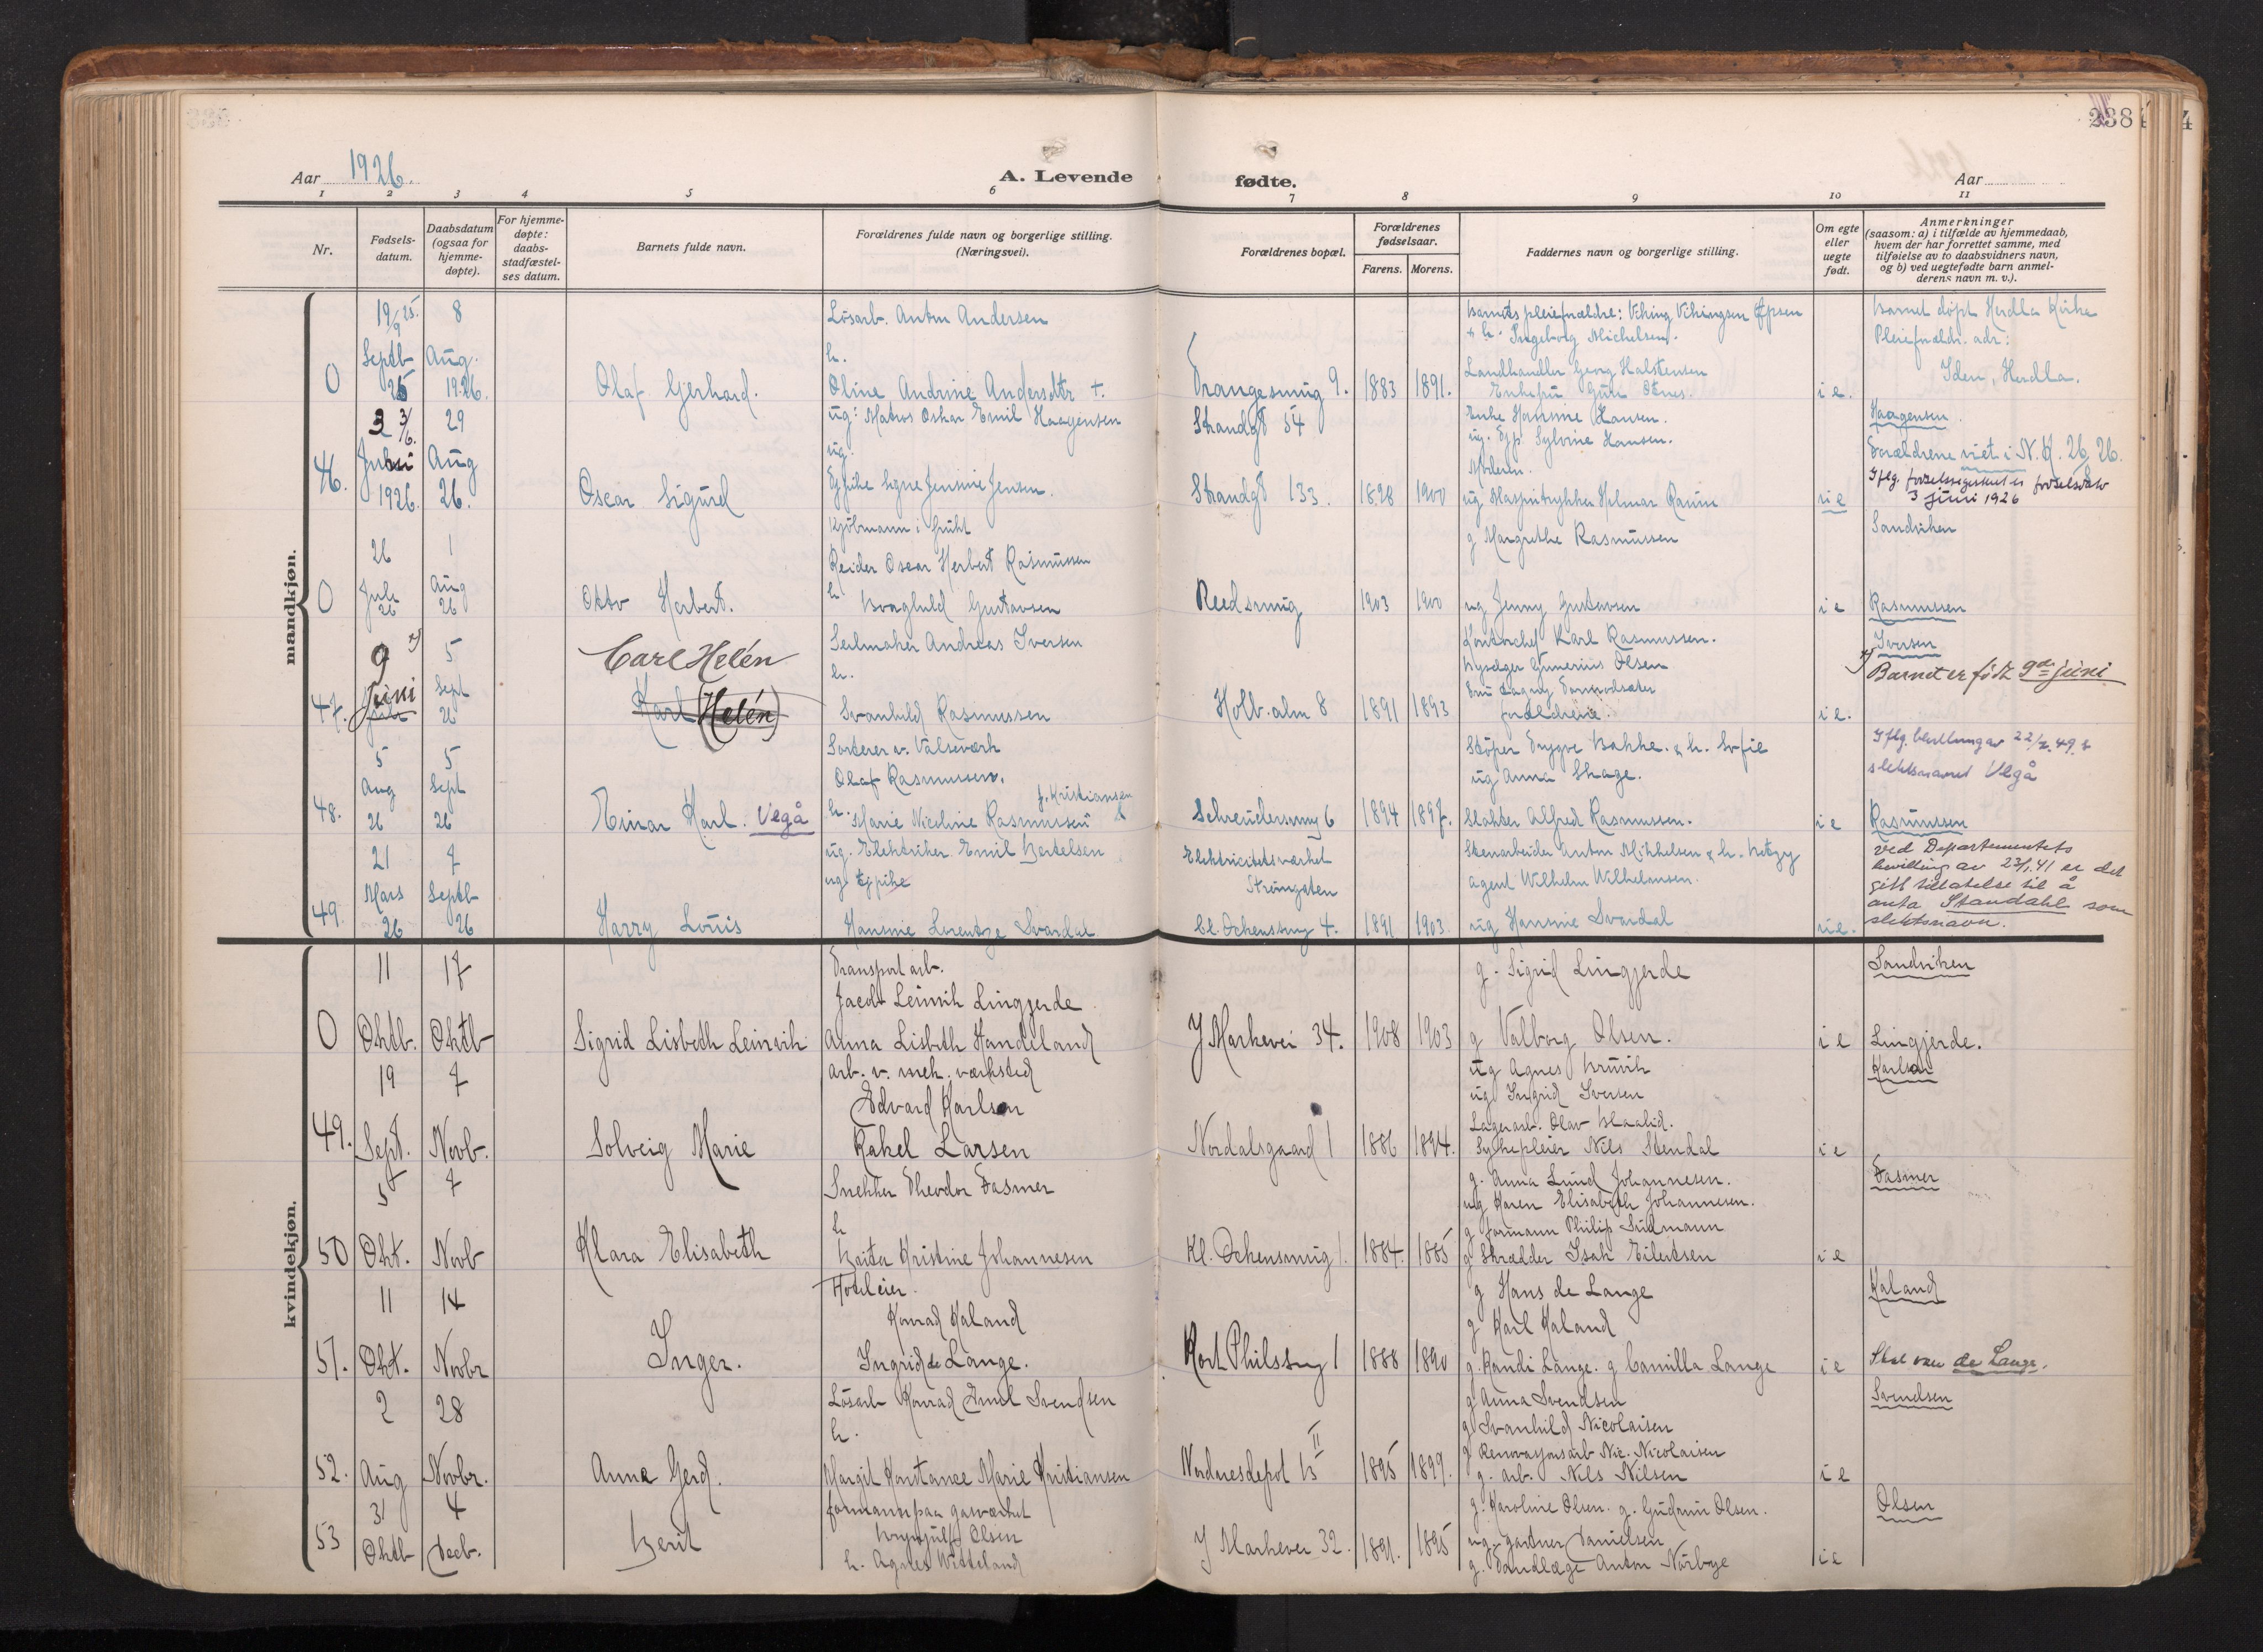 238
Aar 1926.
A. Levende fødte.
Aar
1 2 3 4 5 6 7 8 9 10 11
Nr.
Fødsels-
datum.
Daabsdatum
(ogsaa for
hjemme-
døpte).
For hjemme-
døpte:
daabs-
stadfæstel-
ses datum.
Barnets fulde navn.
Forældrenes fulde navn og borgerlige stilling.
(Næringsvei).
Forældrenes bopæl.
Forældrenes
fødselsaar.
Farens. Morens.
Faddernes navn og borgerlige stilling.
Om egte
eller
uegte
født.
Anmerkninger
(saasom: a) i tilfælde av hjemmedaab,
hvem der har forrettet samme, med
tilføielse av to daabsvidners navn,
og b) ved uegtefødte barn anmel-
derens navn m. v.).
mandkjøn.
0
19/9 25.
Septb
25
8
Aug.
1926.
Olaf Gerhard.
Løsarb. Anton Andersen
h.
Oline Andrine Andersdtr +.
Trangesmug 9.
1883
1891.
Barnets pleieforældre: Viking Vikingsen
+ h. Ingeborg Michelsen.
Landhandler Georg Halstensen
Enkefru
i e.
Barnet døpt Herdla Kirke
Pleieforældr. adr:
Herdla.
46.
3 3/6.
Juni
1926.
29
Aug
26.
Oscar Sigurd
ug: Matros Oskar Emil Haagensen
ug.
Signe Jensine Jensen.
Strandgt 54
Strandgt 133.
1898
1900
Enke Hansine Hansen.
ug. Sylvine Hansen.
Moderen.
ug Helmar Ramm
g Margrethe Rasmussen
u e
Haagensen.
Forældrene viet i N. K. 26/9 26.
Iflg. fødselsregisteret er fødselsdato
3 juni 1926
Sandviken
0
26
Juli
26
1
Aug
26
Otto Herbert.
Kjøbmann i frukt
Reider Oscar Herbert Rasmussen
h
Borghild Gustavsen
Reedsmug
1903
1900
ug Jenny Gustavsen
i e
Rasmussen
47.
9 x)
Juni
5
Sept
26
Carl Helén
Karl (Helén)
Seilmaker Andreas Iversen
h.
Svanhild Rasmussen
Holb. alm 8
1891
1893
Kontorchef Karl Rasmussen.
Gunerius Olsen
Fru Dagny
forældrene.
i e.
Iversen
x) Barnet er født 9de juni
48.
5
Aug
26
5
Sept
26
Einar Karl. Vegå
Sorterer v. Valseverk
Olaf Rasmussen.
f. Kristiansen
h. Marie Nicoline Rasmussen
Schreudersmug 6
1894
1897.
Støper Trygve Bakke. & h. Sofie
ug Anna Skage.
Slakter Alfred Rasmussen.
i e
Iflg. bevilling av 22/2. 49.
slektsnavnet Vegå
Rasmussen
49.
21
Mars
26
7
Septb
26
Harry Louis
ug. Elektriker Emil Bertelsen
ug
Hansine Lorentze Svardal
Elektricitetsverket
Strømgaten
Kl. Dckensmug 4.
1891
1903.
Stenarbeider Anton Mikkelsen & h. Betzy
agent Wilhelm Wilhelmsen.
ug Hansine Svardal
u e.
ved Departementets
bevilling av 23/1. 41 er det
gitt tillatelse til å
anta Standahl som
slektsnavn.
kvindekjøn.
0
11
Oktb.
17
Oktb
Sigrid Lisbeth Leinvik
Transportarb.
Jacob Leinvik Lingjerde
Alma Lisbeth Handeland
J Markevei 34.
1908
1903
g. Sigrid Lingjerde
g Valborg Olsen.
i e
Sandviken
Lingjerde.
49.
19
Sept.
7
Novb.
Solveig Marie
arb. v. mek. værksted
Edvard Karlsen
Rakel Larsen
Nordalsgaard 1
1886
1894.
ug Agnes Brunvik
ug Ingrid Iversen
Lagerarb. Olav Blaalid.
Sykepleier Nils Stendal
i e
Karlsen
50
5
Okt.
7
Novb
Klara Elisabeth
Snekker Theodor Dasmer
h
Berta Kristine Johannesen
Kl. Dokensmug 1.
1884.
1885
g. Anna Lund Johannesen.
ug Karen Elisabeth Johannesen.
g formann Philip Sudmann
g Skrædder Isak Eilertsen
i e
Dasmer
51.
11
Okt.
14
Novbr
Inger.
Hoteleier.
Konrad Kaland
Ingrid de Lange.
Kort Philssmug 1
1888
1890
g Hans de Lange
g Karl Kaland
g. Randi Lange. g Camilla Lange
i e
Kaland
Skal være de Lange.
52.
2
Aug
28
Novbr.
Anna Gerd.
Løsarb Konrad Emil Svendsen
h.
Margit Konstance Marie Kristiansen
Nordnesdepot B II
1895
1899.
g Anna Svendsen
g Svanhild Nicolaisen
g Renovasjonsarb Nic. Nicolaisen
g. arb. Nils Nilsen
i e
Svendsen
53
31
Oktb
4
Decb.
Berit
formann paa gasværket
Brynjulf Olsen
h. Agnes Witteland
J Markevei 32.
1891.
1895
g. Karoline Olsen. g. Gudrun Olsen.
ug. gartner Danielsen
g. Tandlæge Anton Norbye
i e
Olsen